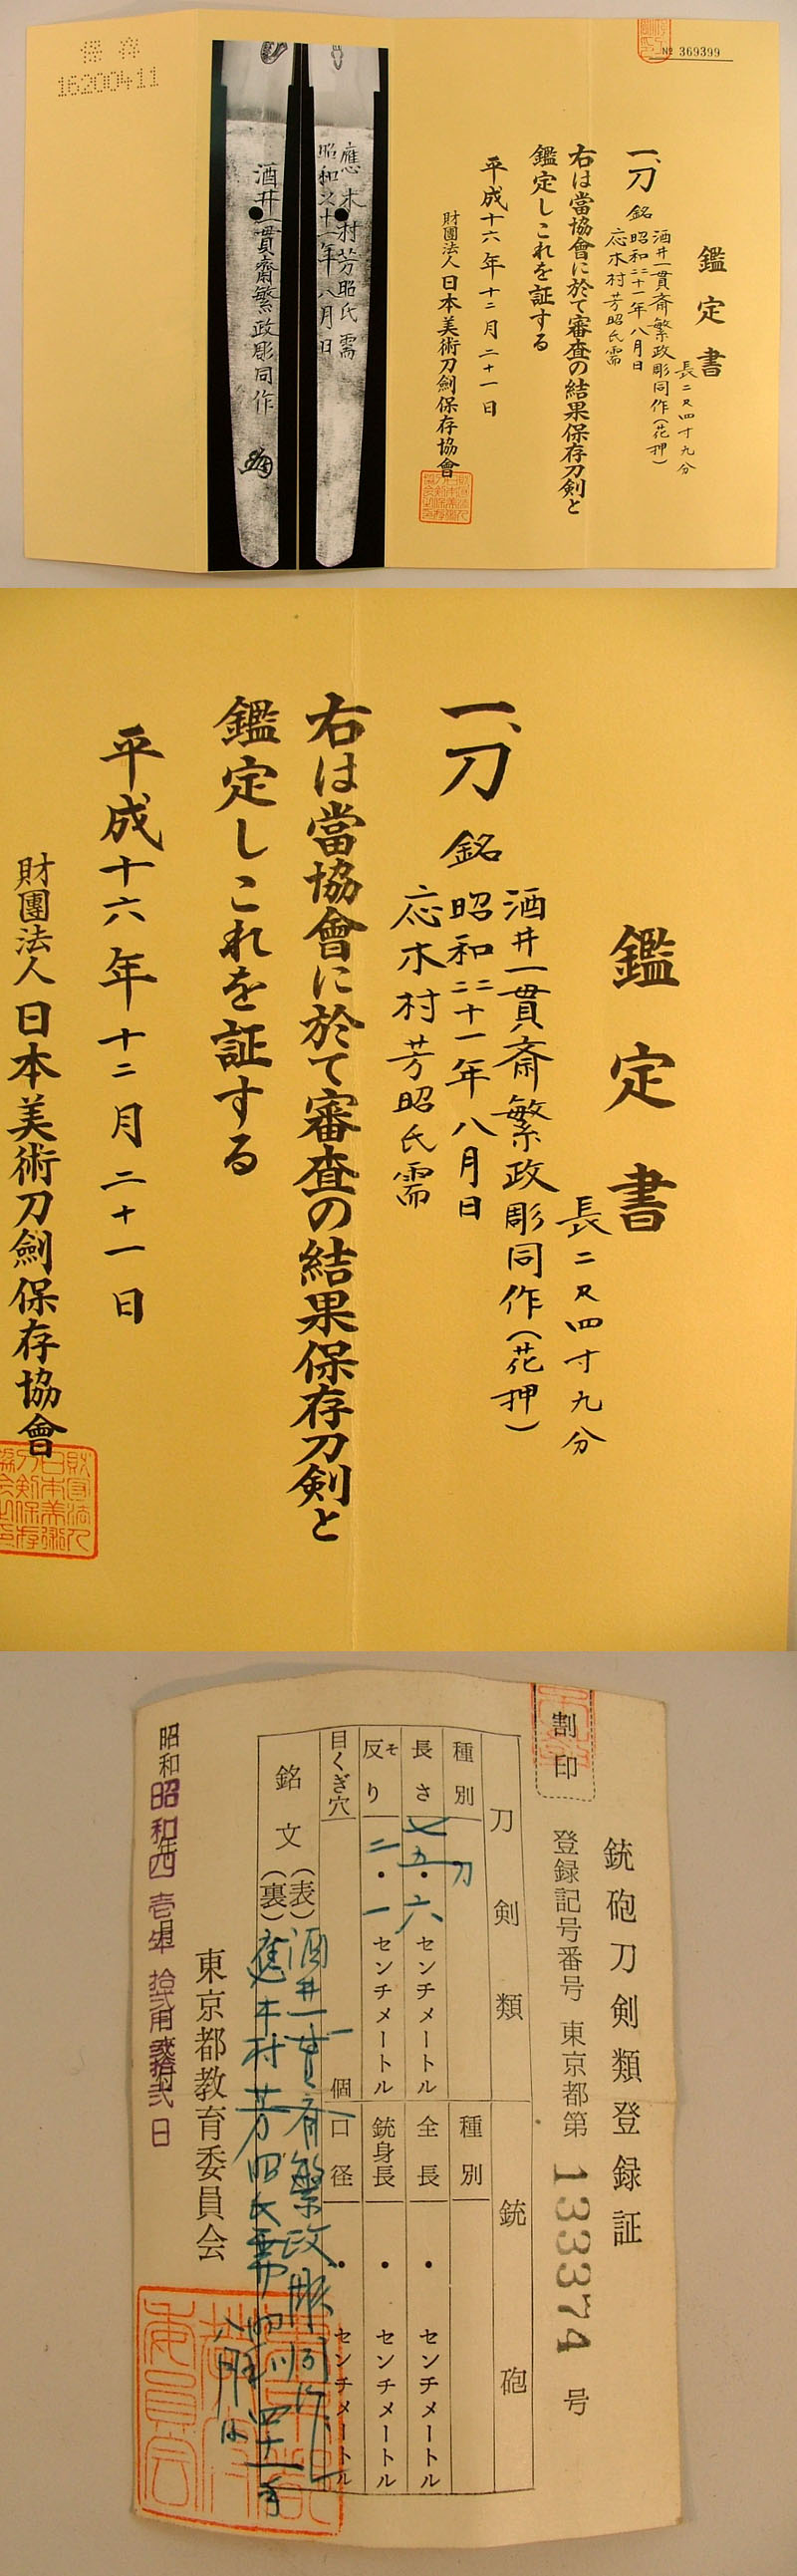 保存
16200411
應木村芳昭氏需
昭和二二十一年八月日
酒井一貫齋繁政彫同作
№ 369399
鑑定書
長二尺四寸九分
一、刀 銘 酒井一貫斎繁政彫同作(花押)
昭和二二十一年八月日
応木村芳昭氏需
右は當協會に於て審査の結果保存刀剣と
鑑定しこれを証する
平成十六年十二月二十一日
財團法人日本美術刀劍保存協會
鑑定書
長二尺四寸九分
一、刀 銘 酒井一貫斎繁政彫同作(花押)
昭和二二十一年八月日
応木村芳昭氏需
右は當協會に於て審査の結果保存刀剣と
鑑定しこれを証する
平成十六年十二月二十一日
財團法人日本美術刀劍保存協會
割印
銃砲刀剣類登録証
登録記号番号 東京都第 133374 号
刀剣類
銃砲
種別 刀
種別
長さ 七五・六 センチメートル
全長 ・ センチメートル
反り 二・一 センチメートル
そ
銃身長 ・ センチメートル
目くぎ穴 一 個
口径 ・ センチメートル
銘文
(表) 酒井一貫斎繁政彫同作
(裏) 應木村芳昭氏需 昭和四十一年
八月日
東京都教育委員会
昭和 昭和四壱年 拾弐月 日